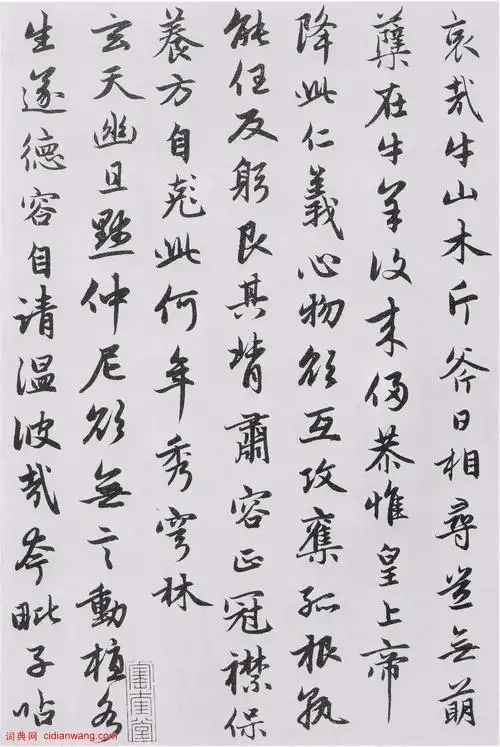 哀哉牛山木斤斧日相尋豈无萌
蘖在牛羊復来侵恭惟皇上帝
降此仁義心物欲互攻奪孤根孰
能任反躬艮其背肅容正冠襟保
養方自此何年秀穹林
玄天幽且默仲尼欲無言動植各
生遂德容自請温彼哉夸毗子呫
词典网 cidianwang.com